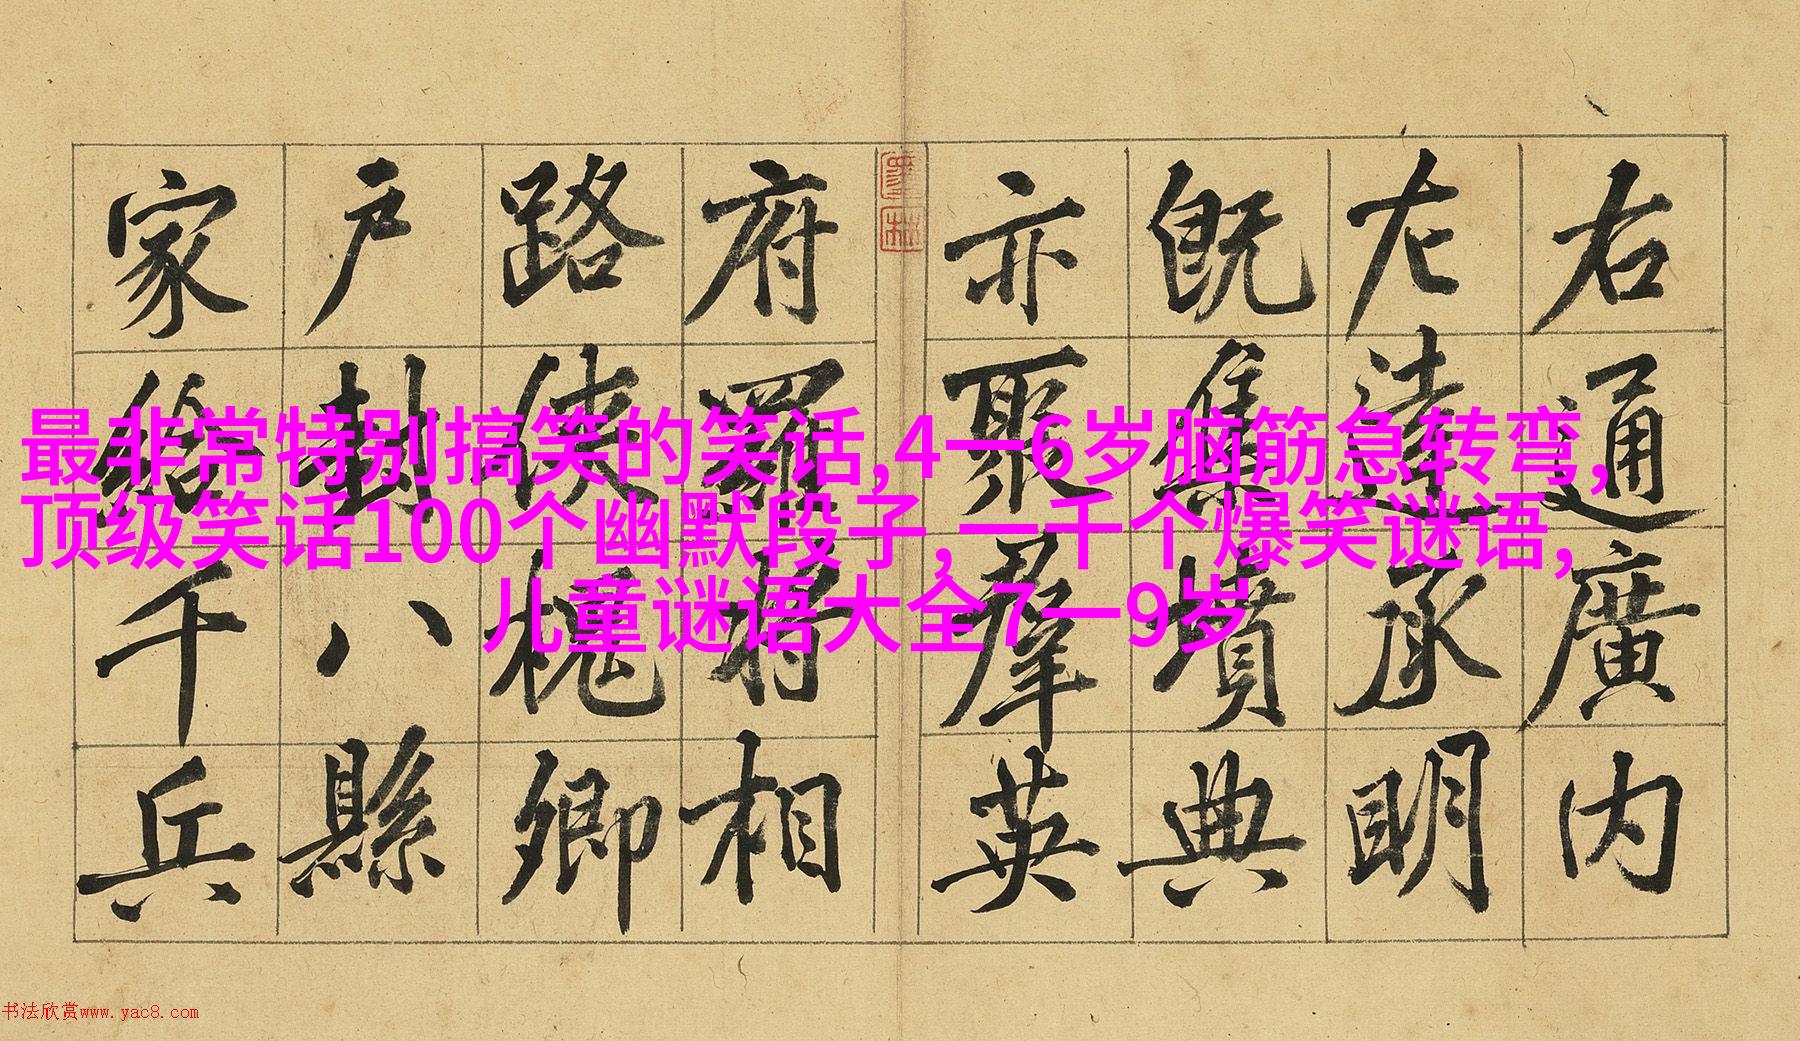 右通廣内
左達承明
既集墳典
亦聚羣英
府羅将相
路俠槐卿
户封八縣
家給千兵
最非常特别搞笑的笑话,4一6岁脑筋急转弯,
顶级笑话100个幽默段子,一千个爆笑谜语,
儿童谜语大全7一9岁
书法欣赏www.yac8.com